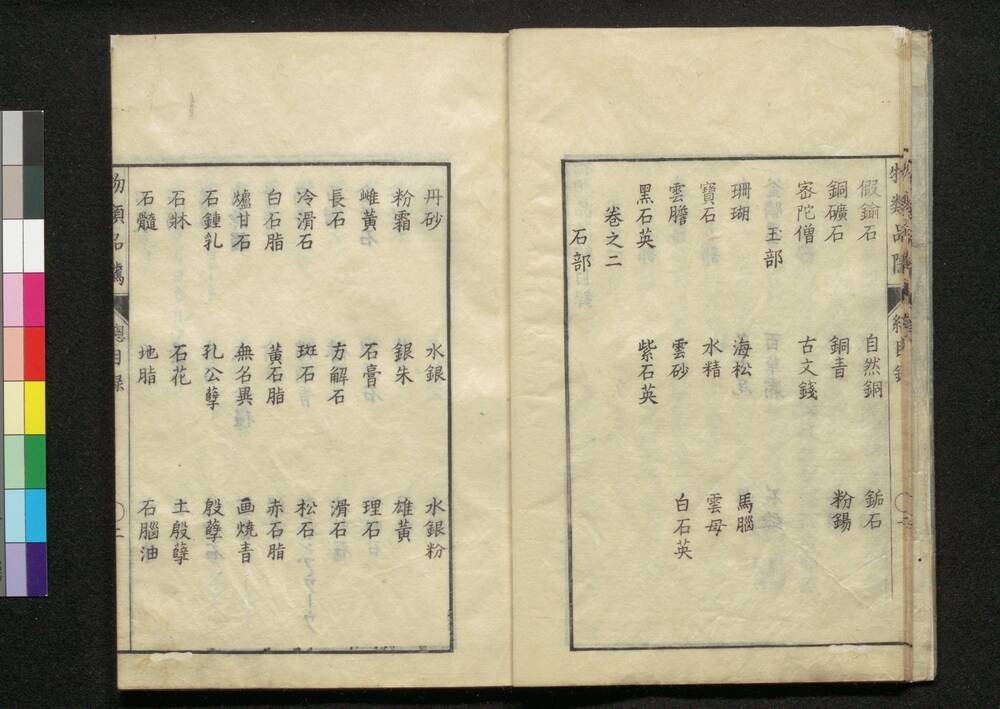 假鍮石 自然銅 䤥石
銅礦石 銅青 粉錫
宻陀僧 古文錢
玉部
珊瑚 海松 馬腦
寶石 水精 雲母
雲膽 雲砂 白石英
黒石英 紫石英
巻之二
石部
丹砂 水銀 水銀粉
粉霜 銀朱 雄黄
雌黄 石膏 理石
長石 方解石 滑石
冷滑石 斑石 松石
白石脂 黄石脂 赤石脂
爐甘石 無名異 画燒青
石鍾乳 孔公孽 殷孽
石牀 石花 土殷孽
石髓 地脂 石腦油
物類品隲 總目録 〇二